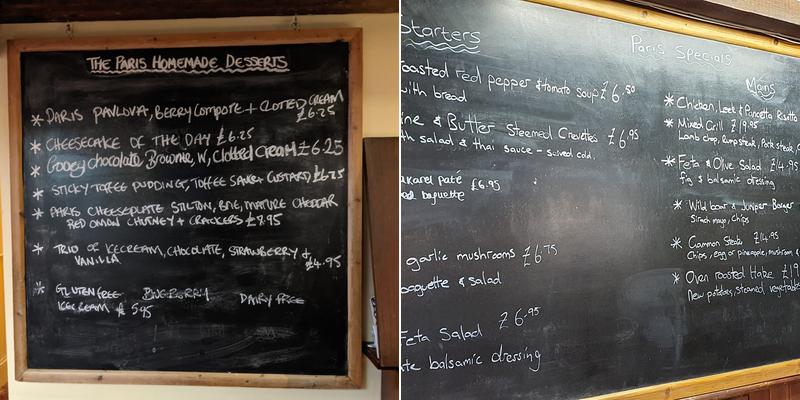 THE PARIS HOMEMADE DESSERTS
* DARIS PAVLOVA, BERRY COMPOTE + CLOTTED CREAM
£6.25
* CHEESECAKE OF THE DAY £6.25
* Gooey chocolate Brownie, W, Clotted Cream £6.25
* STICKY TOFFEE PUDDING, TOFFEE CUSTARD £6.25
* PARIS CHEESEPLATE STILTON, BRIE, MATURE CHEDDAR
RED ONION CHUTNEY + CRACKERS £8.95
* TRIO OF ICECREAM, CHOCOLATE, STRAWBERRY +
VANILLA £4.95
* GLUTEN FREE BLUEBERRY DAIRY FREE
ICECREAM £ 5.95
Starters
oasted red pepper & tomato soup £6.50
with bread
ine & Butter Steamed Crevettes £6.95
th salad & thai sauce - served cold.
akarel paté £6.95
baguette
garlic mushrooms £6.75
baguette & salad
Feta Salad £6.95
te balsamic dressing
Paris Specials
Mains
* Chicken, Leek & Pancetta Risotto
* Mixed Grill £19.95
Lamb chop, Rumpsteak, Pork steak, G
* Feta & Olive Salad £14.95
fig & balsamic dressing
* Wild boar & Juniper Burger
Sirach mayo, chips
* Gammon Steak £14.95
Chips, egg or pineapple, mushroom, &
* Oven roasted Hake £19
New potatoes, steamed vegetable